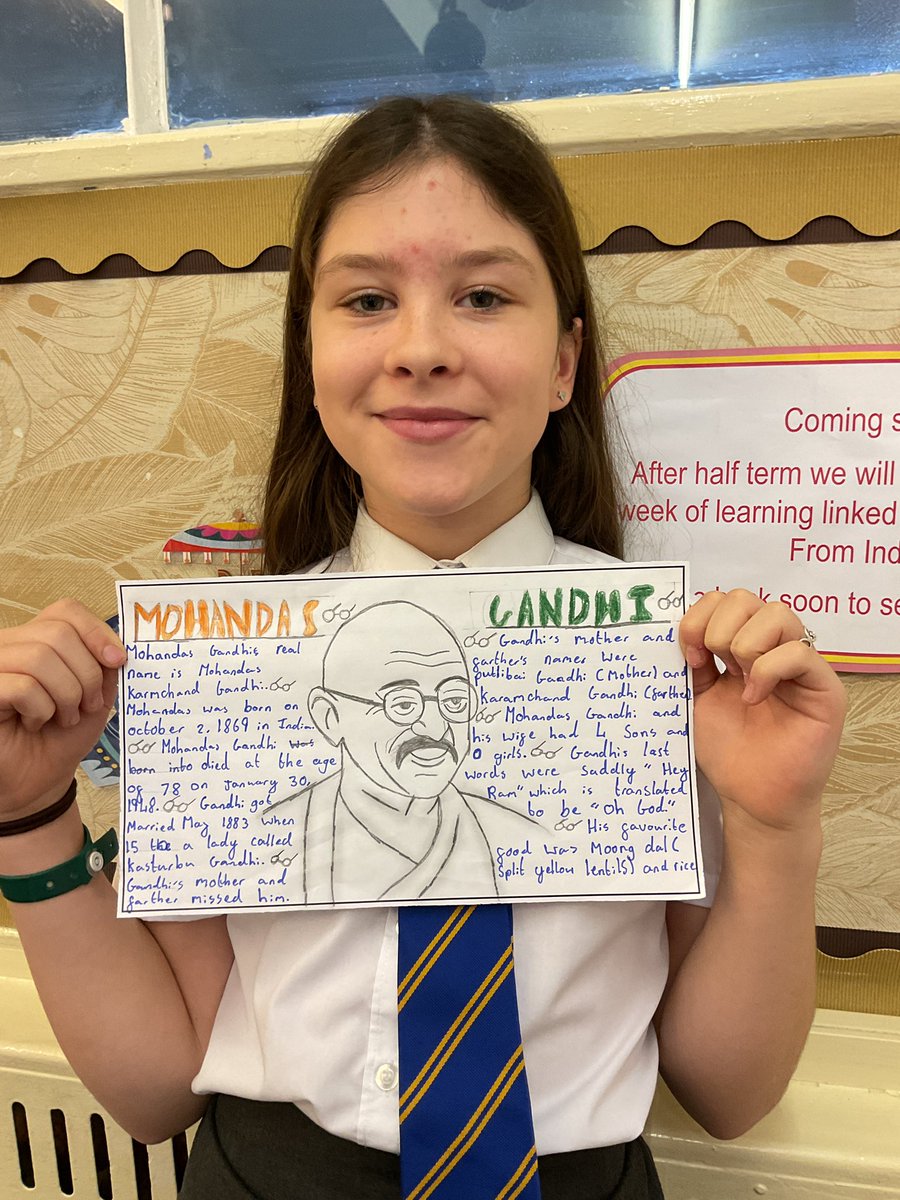 MOHANDAS
Mohandas Gandhi's real
name is Mohandas
Karmchand Gandhi.
Mohandas was born on
October 2, 1869 in India.
Mohandas Gandhi was
born into died at the age
of 78 on January 30,
1948. Gandhi got
Married May 1883 when
15 to a lady called
Kasturba Gandhi.
Gandhi's mother and
farther missed him.
GANDHI
Gandhi's mother and
farther's names were
putlibai Gandhi (Mother) and
Karamchand Gandhi (farther)
Mohandas Gandhi and
his wife had 4 Sons and
0 girls. Gandhis last
words were saddly "Hey
Ram" which is translated
to be "Oh God."
His favourite
food was Moong dal (
Split yellow lentils) and rice
Coming s
After half term we will
week of learning linked
From Ind
soon to se